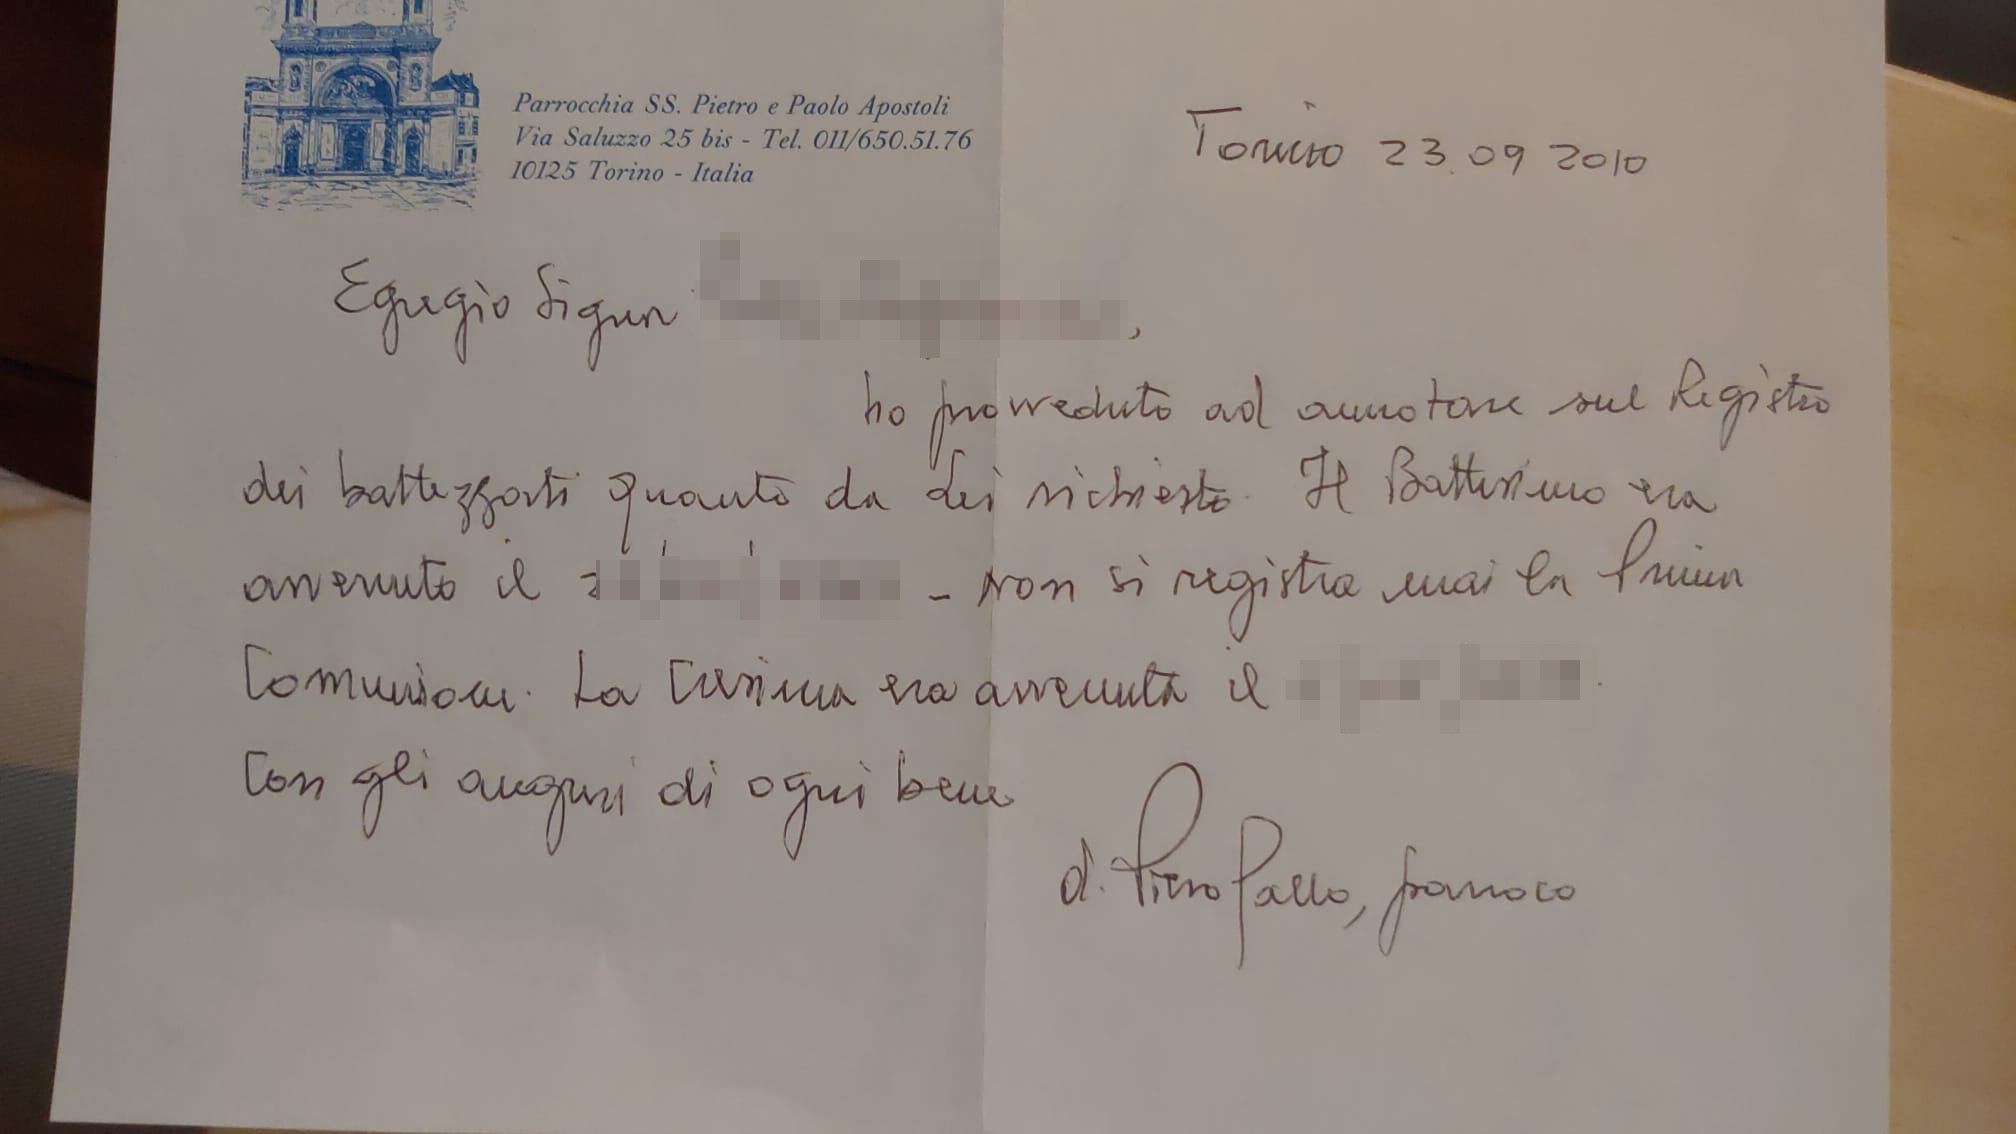 Parrocchia SS. Pietro e Paolo Apostoli
Via Saluzzo 25 bis - Tel. 011/650.51.76
10125 Torino - Italia
Torino 23.09 2010
Egregio Signor ,
ho provveduto ad annotare sul Registro
dei battezzati quanto da Lei richiesto. Il Battesimo era
avvenuto il - Non si registra mai la Prima
Comunione. La Cresima era avvenuta il .
Con gli auguri di ogni bene
d. Piero Gallo, parroco